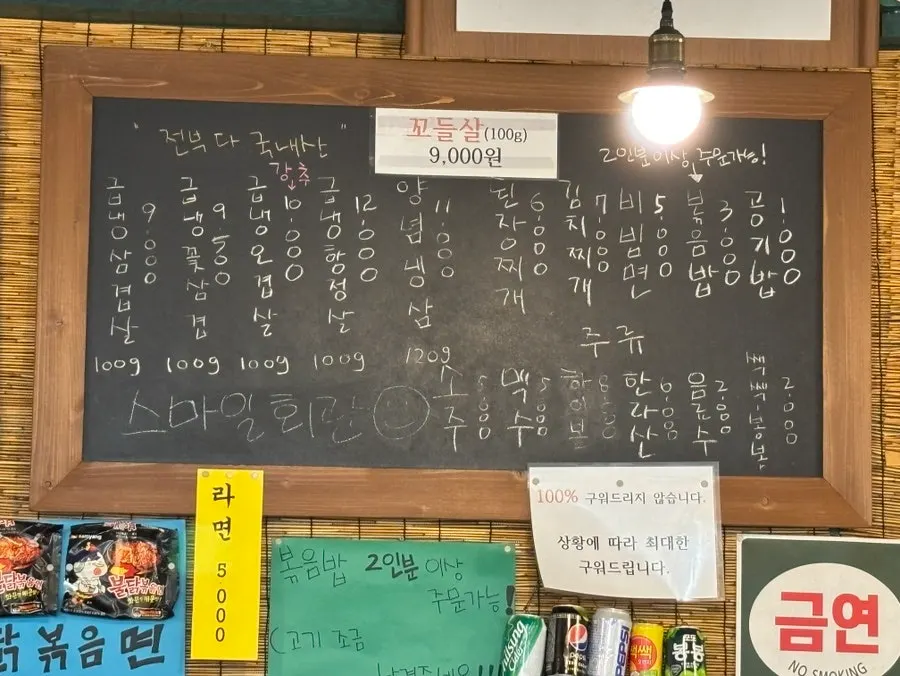 " 전부 다 국내산 "
꼬들살(100g)
9,000원
2인분이상, 주문가능!
급냉삼겹살 9,000
100g
급냉꽃삼겹 9,500
100g
강추
급냉오겹살 10,000
100g
급냉항정살 12,000
100g
양념냉삼 11,000
120g
된장찌개 6,000
김치찌개 7,000
비빔면 5,000
볶음밥 3,000
공기밥 1,000
주류
소주 5,000
맥주 5,000
하이볼
한라산 6,000
음료수 2,000
쌕쌕·봉봉 2,000
스마일회관
라면 5000
100% 구워드리지 않습니다.
상황에 따라 최대한
구워드립니다.
볶음밥 2인분 이상
주문가능!
(고기 조금
불닭볶음면
닭볶음면
pepsi
쌕쌕
봉봉
금연
NO SMOKING